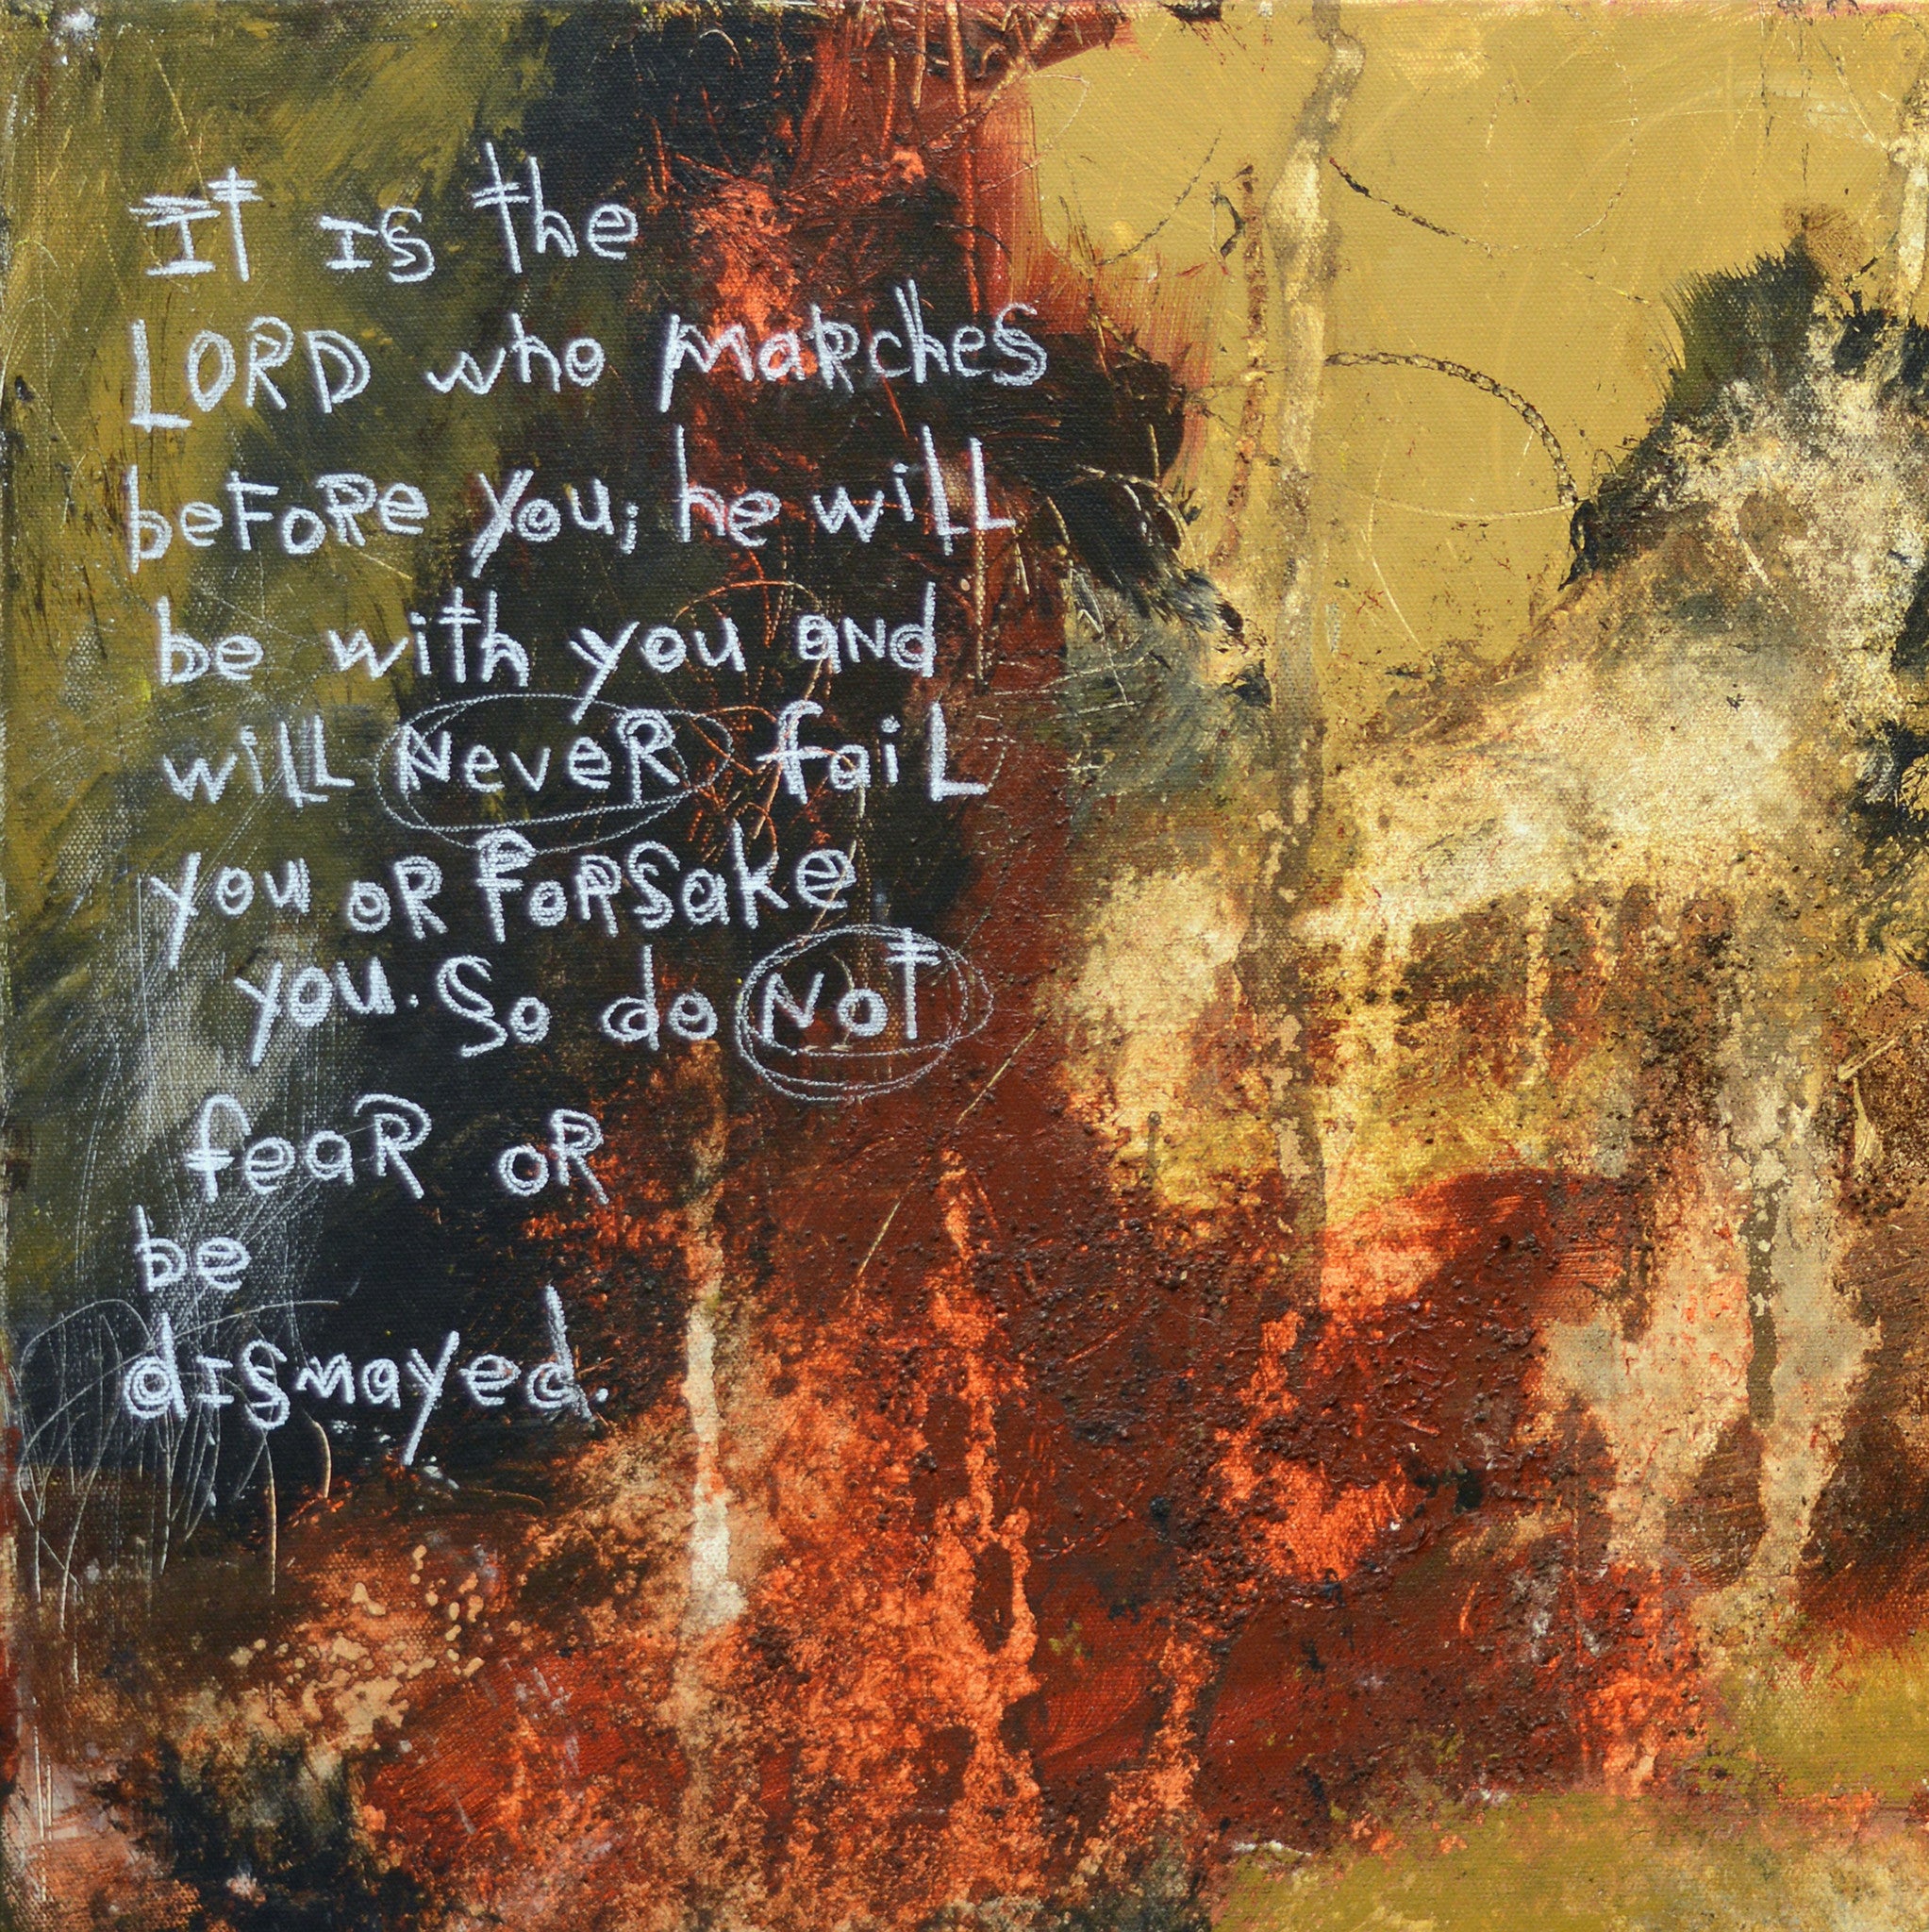 It is the
LORD who marches
before you; he will
be with you and
will never fail
you or forsake
you. So do not
fear or
be
dismayed.